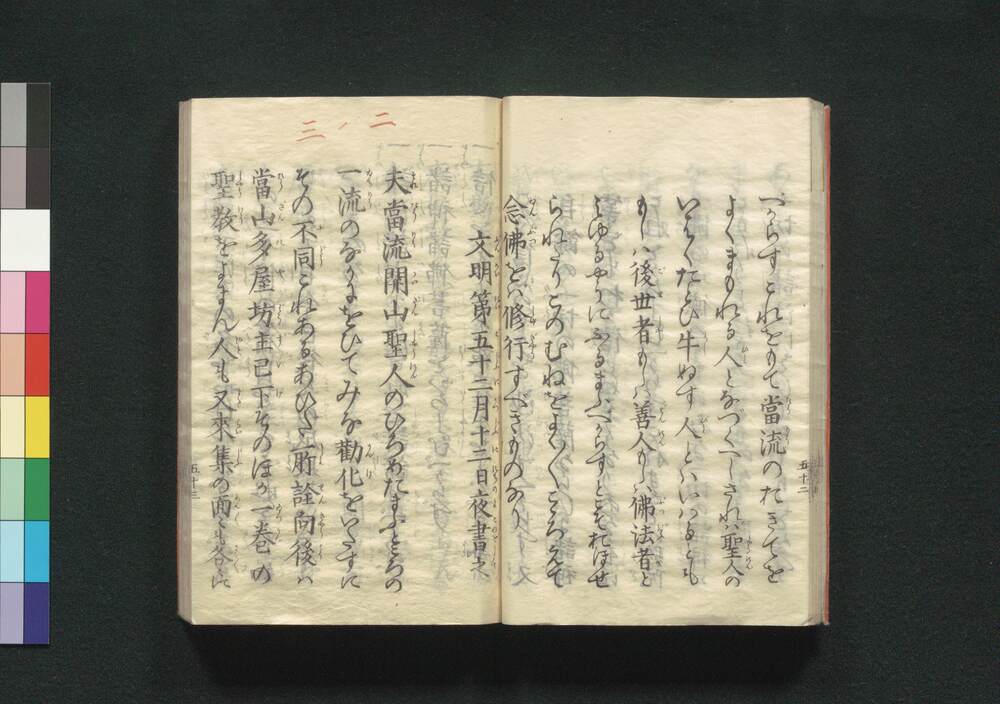 べからすこれをもて當流のおきてを
よくまもれる人となつくへしされハ聖人の
いはくたとひ牛ぬす人とハいハるとも
もしハ後世者もしハ善人もしハ佛法者と
みゆるやうにふるまふへからすとこそおほせ
られたりこのむねをよく〳〵こゝろえて
念佛をハ修行すべきものなり
五十二
二ノ三
文明第五十二月十二日夜書之
夫當流開山聖人のひろめたまふところの
一流のなかにをひてみな勸化をいたすに
その不同これあるあひた所詮向後ハ
當山多屋坊主已下そのほか一巻の
聖教をよまん人も又來集の面々も各々に
五十三